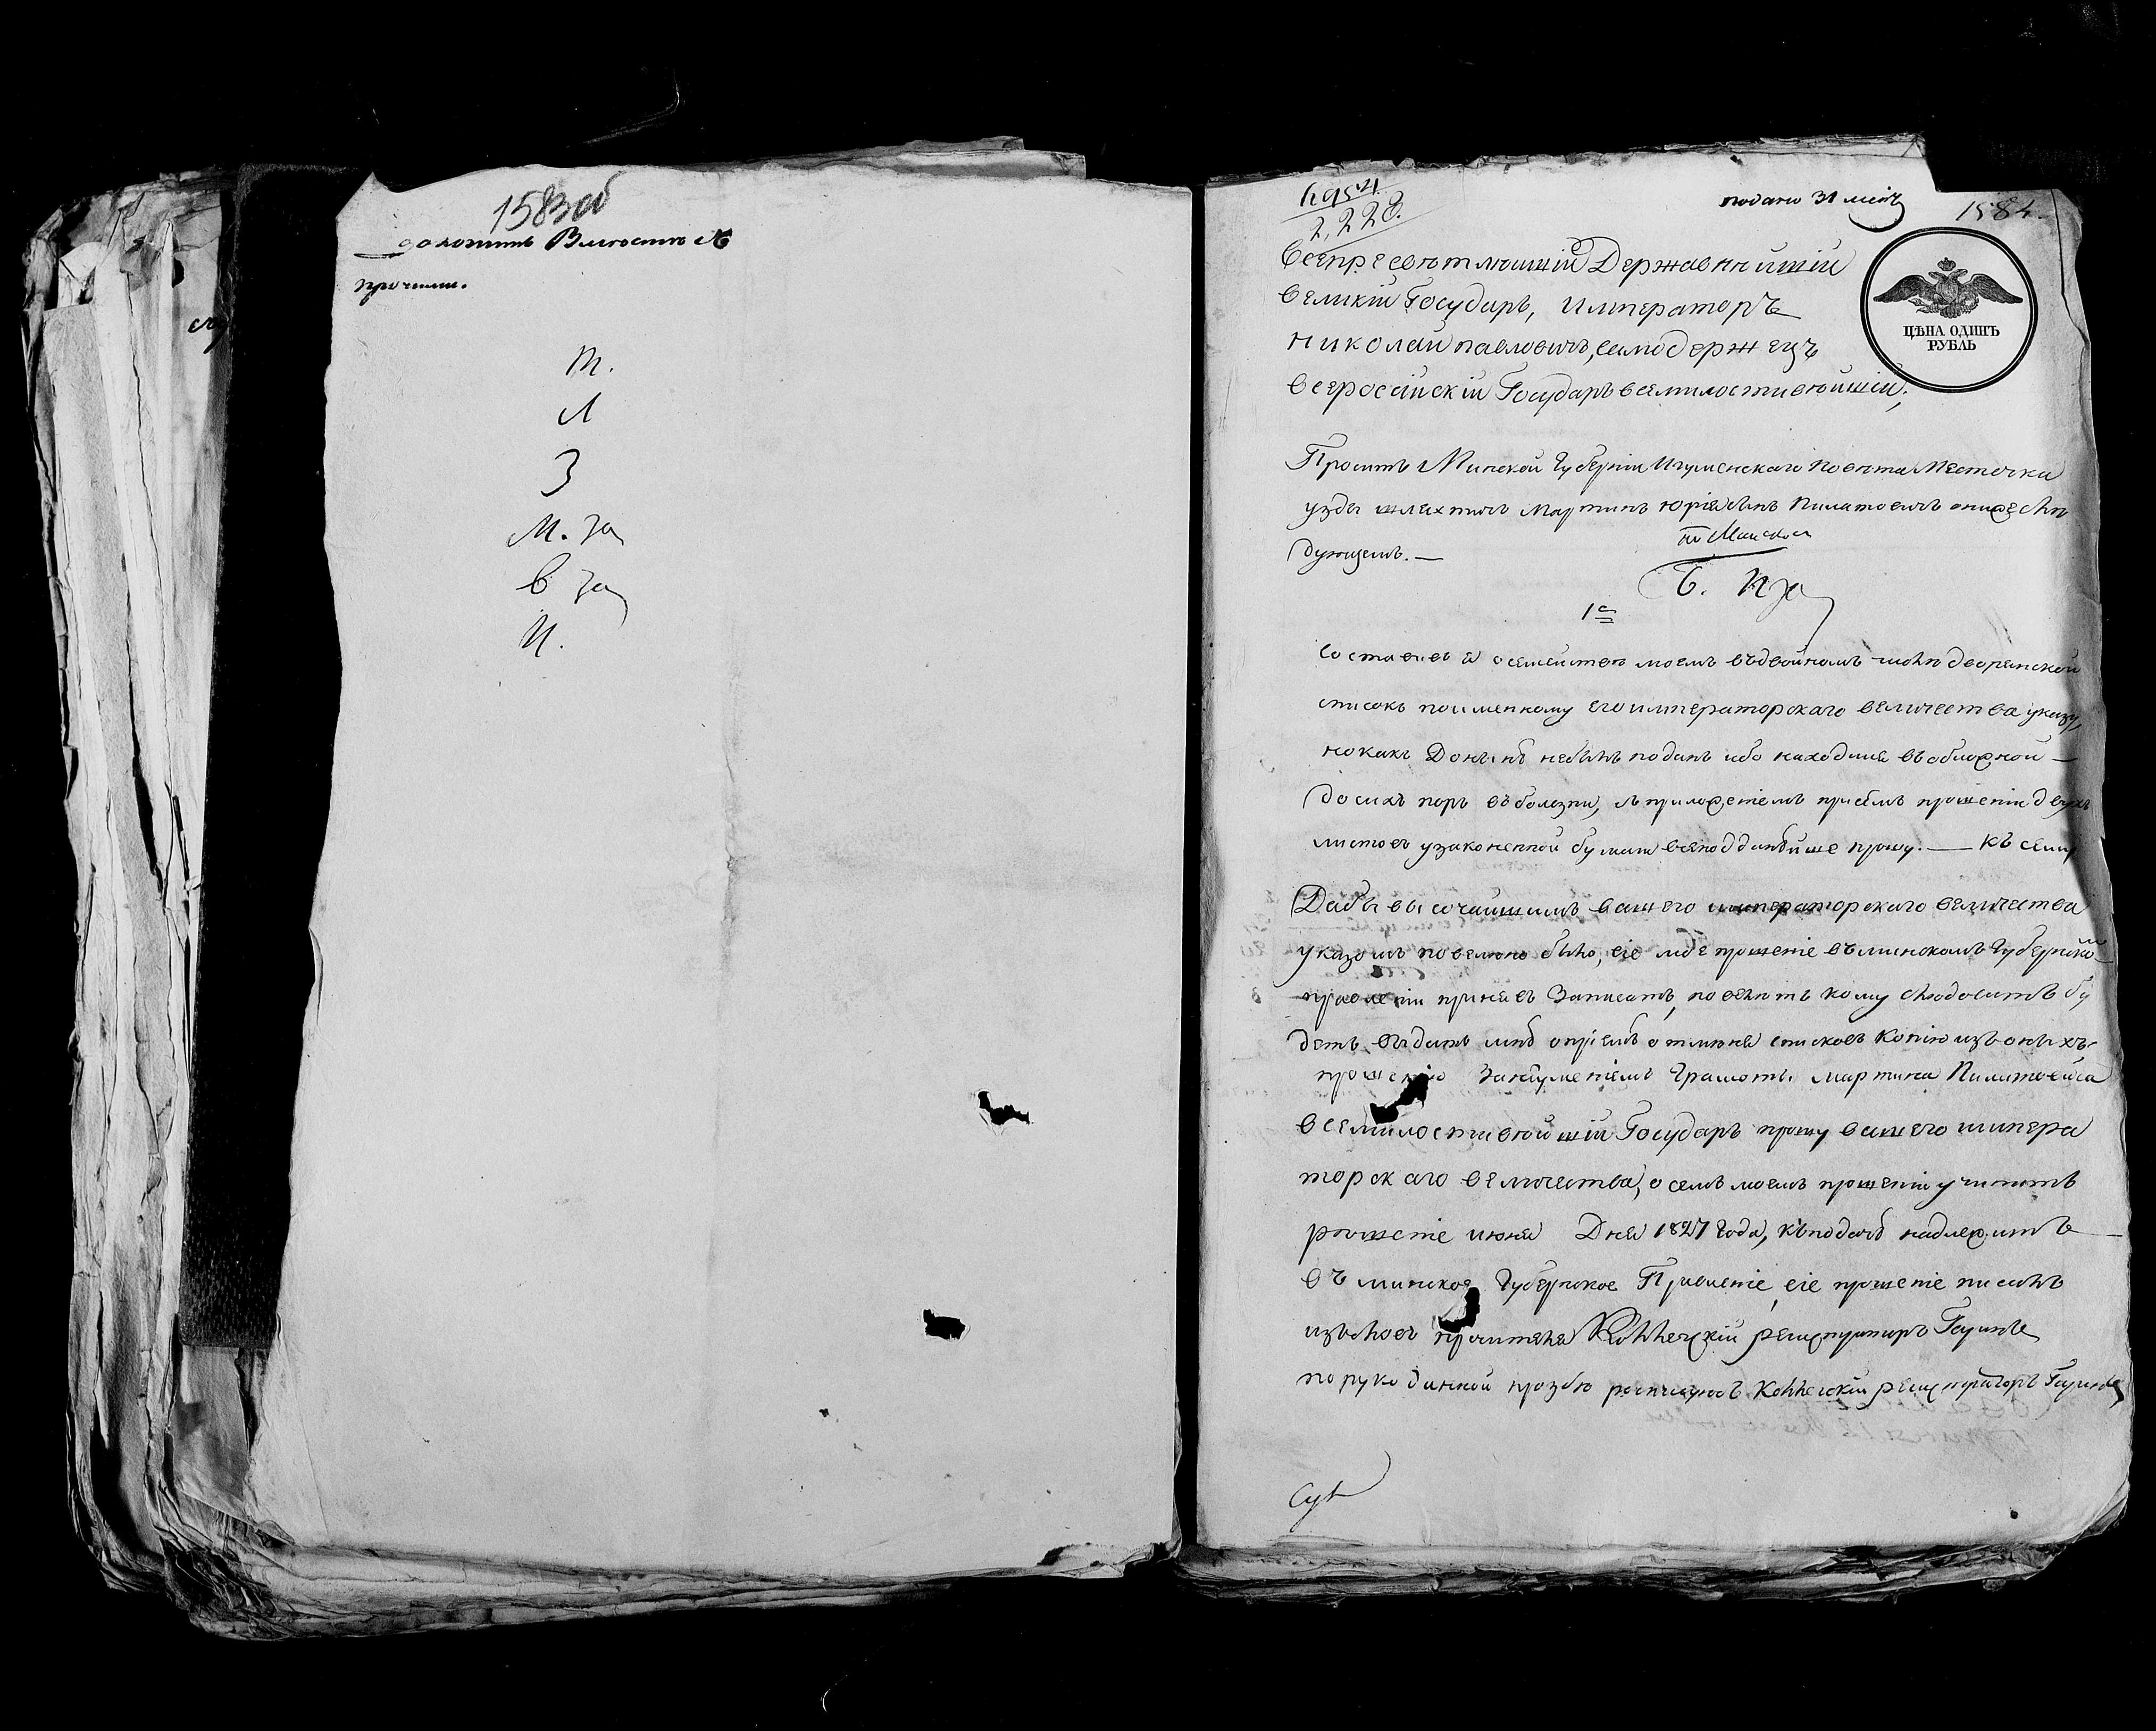 1583об
доложить Вместѣ съ
прочими.
М.
Л
З
М. За
В За
И.
2,228.
подано 31 маія
1584.
ЦѢНА ОДИНЪ
РУБЛЬ
Всепресвѣтлѣишій Державнѣишій
великій Государь, Императоръ
николай павловичъ, самодержецъ
всеросійскій Государь всемилостивѣйшій;
Проситъ Минской Губерніи Игуменскаго повѣта Местечка
узды шляхтичъ Мартинъ Юріевъ Сынъ Пилатовичъ о нижеслѣ
дующемъ. —
1е
составивъ я о семействѣ моемъ въ двойномъ числѣ дворянской
списокъ по именному его императорскаго величества указу,
но какъ Донынѣ небылъ поданъ ибо находился въ обложной —
до сихъ поръ въ болезни, съ приложеніемъ при семъ прошеніи двухъ
листовъ узаконенной бумаги всеподданѣйше прошу. — Къ сему
Дабы высочайшимъ вашего императорскаго величества
указомъ повелѣно было, сіе мое прошеніе въ минскомъ Губернском
правленіи принявъ Записать, повелѣть кому слѣдоватъ бу
детъ выдать мнѣ о пріемѣ отменя списковъ Копію изъ оныхъ
прошенію Мартина Пилатовича
всемилостивѣйшій Государь прошу вашего импера
торскаго величества, о семъ моемъ прошеніи учинить
решеніе июня Дня 1827 года, къ подачѣ надлежитъ —
въ минское Губернское Правленіе, сіе прошеніе писалъ
изъ словъ просителя Коллежскій регистраторъ
по рукоданной прозбѣ росписуюсь Коллежскій регистраторъ